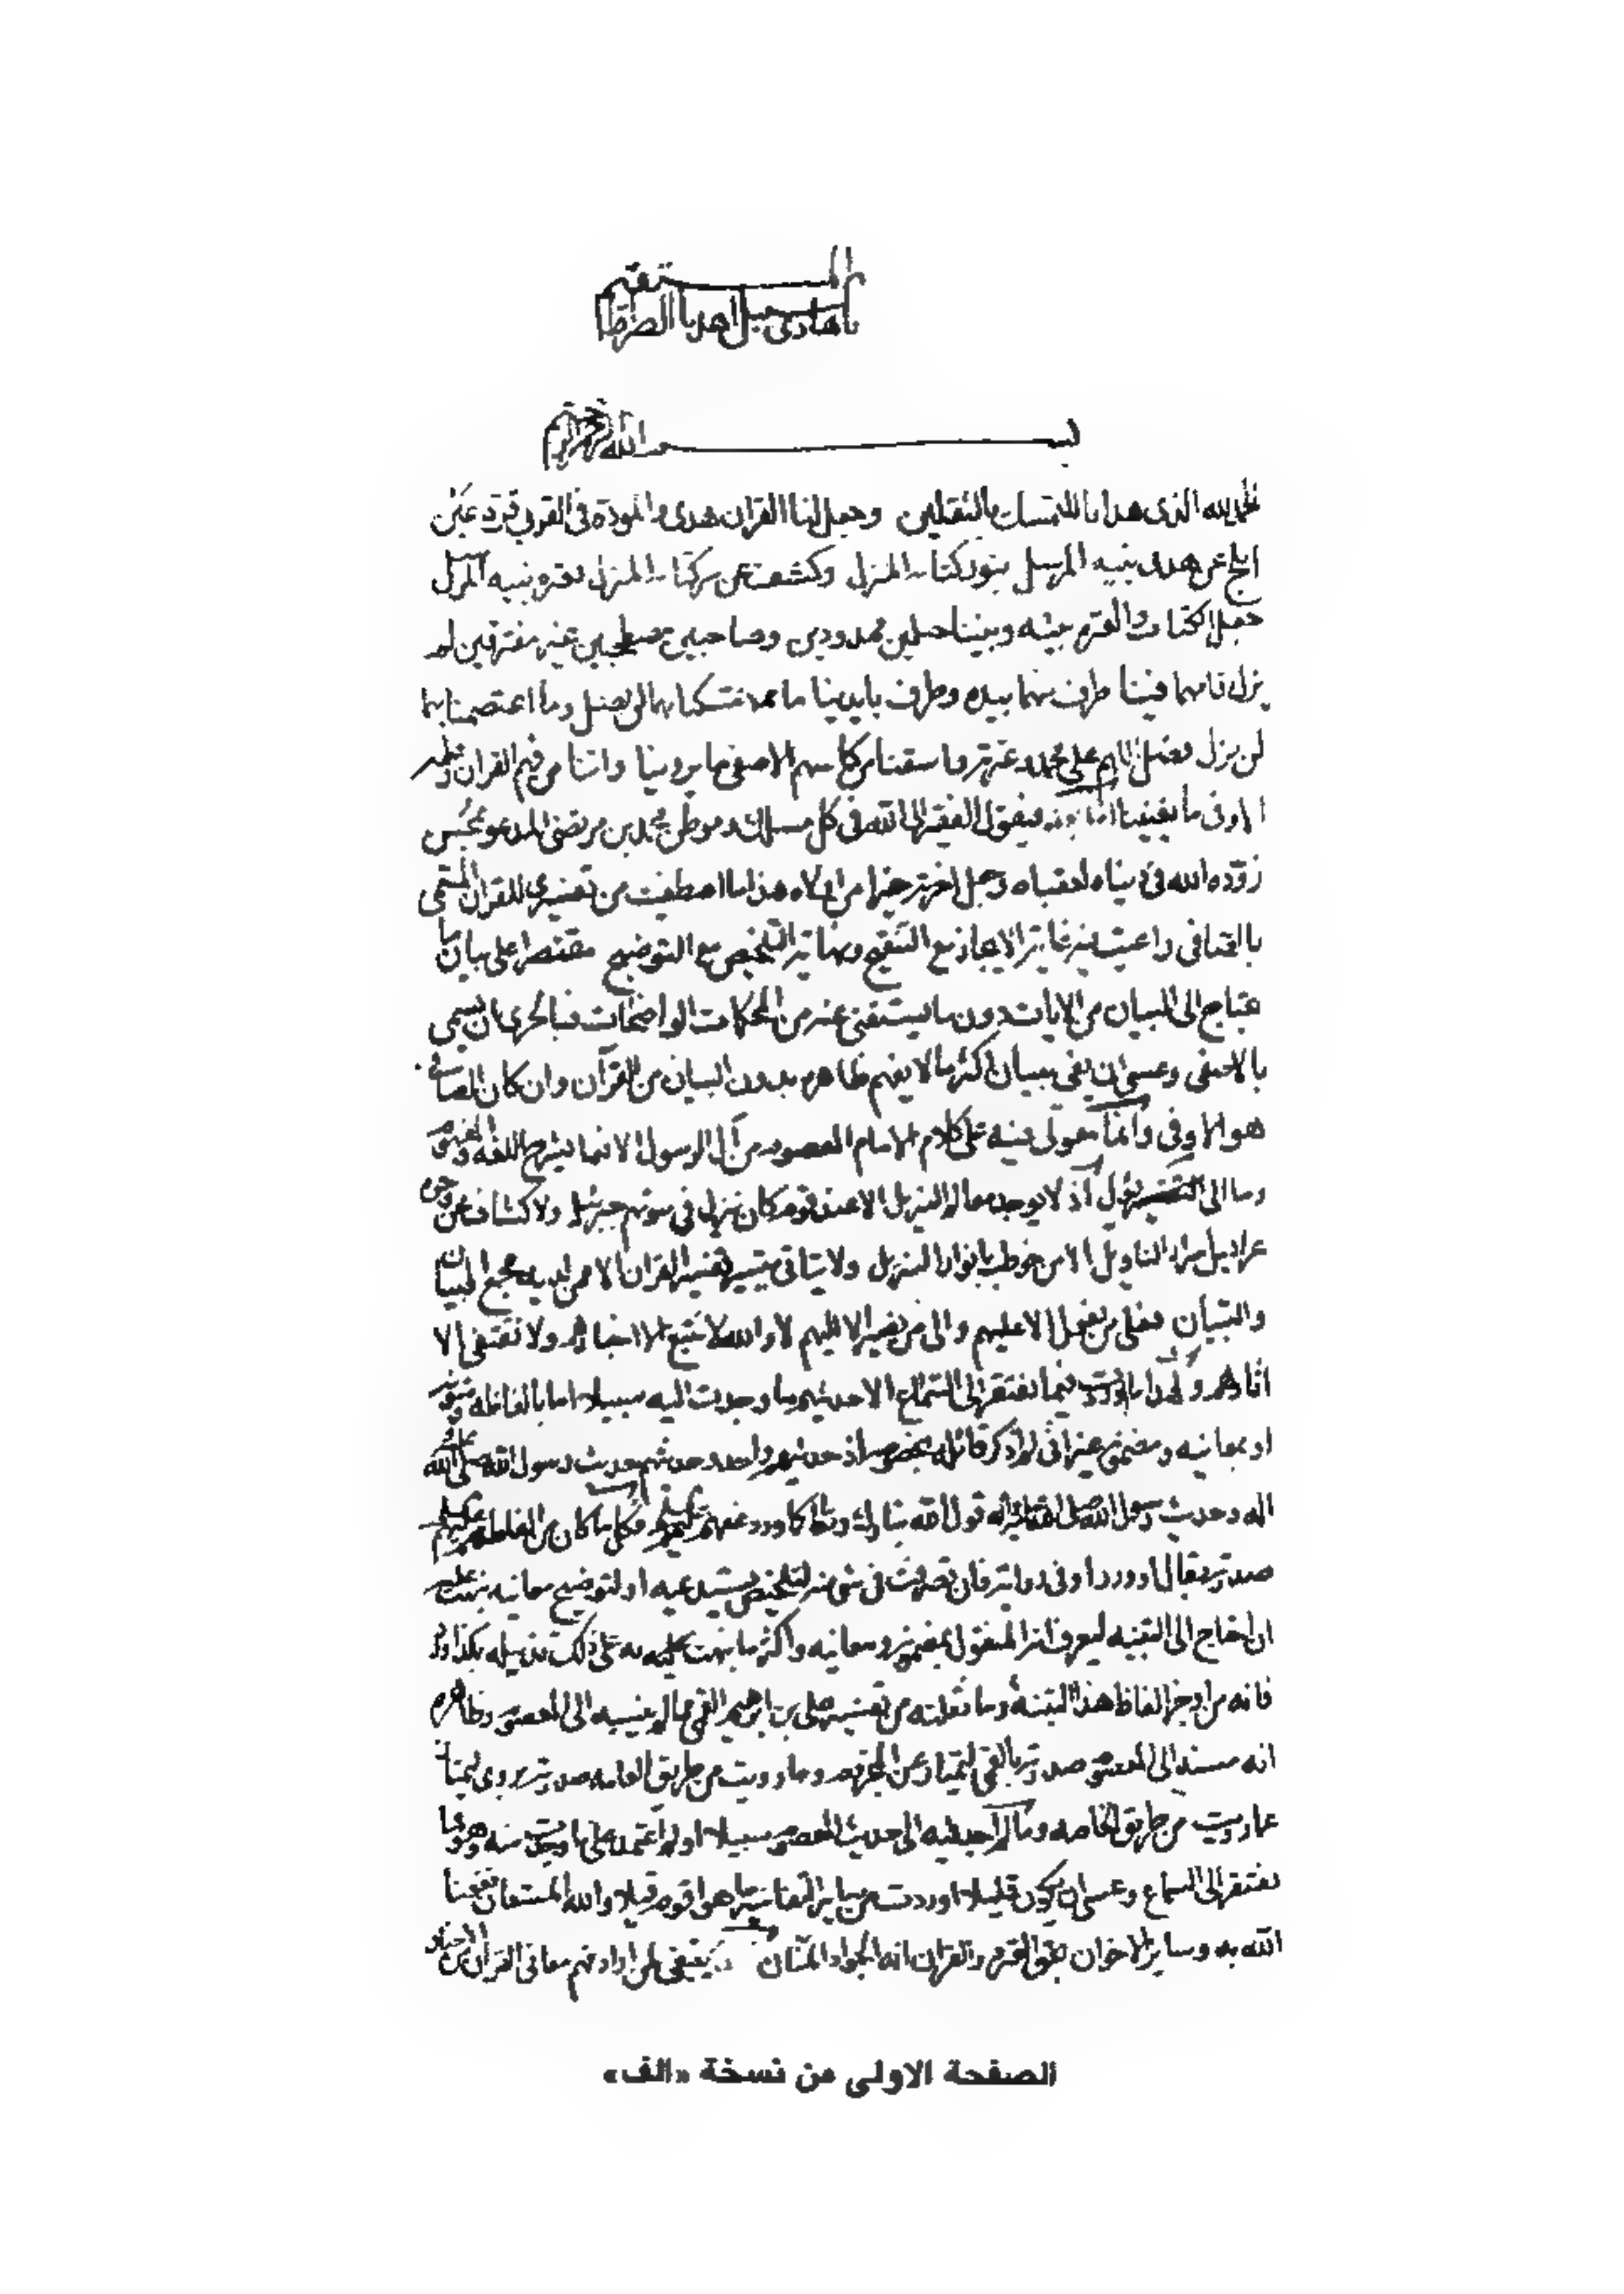 يا هادي السبيل اهدنا الصراط المستقيم
بسم الله الرحمن الرحيم
الحمد لله الذى هدانا للتمسك بالثقلين وجعل لنا القران هدى والمودة فى القربى قرة عين
ابلج عن هدى نبيه المرسل بنور كتابه المنزل وكشف عن سر كتابه المنزل بعترة نبيه المرسل
جعل الكتاب والعترة بينه وبيننا حبلين ممدودين وصاحبين مصطحبين غير مفترقين لم
يزل اقامهما فينا طرف منهما بيده وطرف بايدينا ما تمسكنا بهما لن نضل وما اعتصمنا بهما
لن نزل فصل اللهم على محمد وعترته واسقنا من كاسهم الاصفى ما يروينا واتنا من فهم القران وعلمه
الاوفى ما يغنينا اما بعد فيقول الفقير الى الله فى كل مسلك وموطن محمد بن مرتضى المدعو بمحسن
زوده الله فى دنياه لعقباه وجعل اخرته خيرا من اولاه هذا ما اصطفيت من تفسيرى للقران المسمى
بالصافى راعيت فيه غاية الايجاز مع التنقيح ونهاية التلخيص مع التوضيح مقتصرا على بيان ما
يحتاج الى البيان من الايات دون ما يستغنى عنه من المحكمات الواضحات فبالحرى ان يسمى
بالاصفى وعسى ان يفى ببيان اكثر ما لا يفهم ظاهره بدون البيان من القرآن وان كان الصافى
هو الاوفى وانما معولى فيه على كلام الامام المعصوم من آل الرسول الا فيما يشرح اللغة والمفهوم
وما الى القشر يؤل اذ لا يوجد معالم التنزيل الا عند قوم كان ينزل فى بيوتهم جبرئيل ولا كشاف عن وجوه
عرايس اسرار التاويل الا من خوطب بانوار التنزيل ولا يتاتى تيسير تفسير القران الا ممن لديه مجمع البيان
والتبيان فعلى من نعول الا عليهم والى من نصير الا اليهم لا والله لا نتبع الا اخبارهم ولا نقتفى الا
اثارهم ولهذا ما اوردت فيما يفتقر الى السماع الا حديثهم ما وجدت اليه سبيلا اما بالفاظه ومتونه
او بمعانيه ومضمونه غير انى لم اذكر قائله بخصوصه اذ حديثهم واحد وحديثهم حديث رسول الله صلى الله عليه
واله وحديث رسول الله صلى الله عليه واله قول الله تبارك وتعالى كما ورد عنهم عليهم السلام وكل ما كان من الفاظهم عليهم السلام
صدرته بقال او ورد او فى رواية فان تصرفت فى شئ منه لتلخيص يستدعيه او لتوضيح معانيه نبهت عليه
ان احتاج الى التنبيه ليعرف انه المنقول بمضمونه ومعانيه واكثر ما نبهت عليه به على ذلك تذييله بكذا ورد
فانه من اوجز الفاظ هذا التنبيه وما نقلته من تفسير على بن ابراهيم القمى مما لم ينسبه الى المعصوم وظاهره
انه مسند الى المعصوم صدرته بالقمى ليمتاز عن المجزوم وما رويت من طريق العامة صدرته بروى ليمتاز
عما رويت من طريق الخاصة وما لم اجد فيه الى حديث المعصوم سبيلا او لم اعتمد على ما وجدت منه وهو مما
يفتقر الى السماع وعسى ان يكون قليلا اوردت من ساير التفاسير ما هو اقوم قيلا والله المستعان نفعنا
الله به وساير الاخوان بحق العترة والقران انه الجواد المنان ينبغى لمن اراد فهم معانى القرآن من الاخبار
الصفحة الاولى من نسخة «الف»